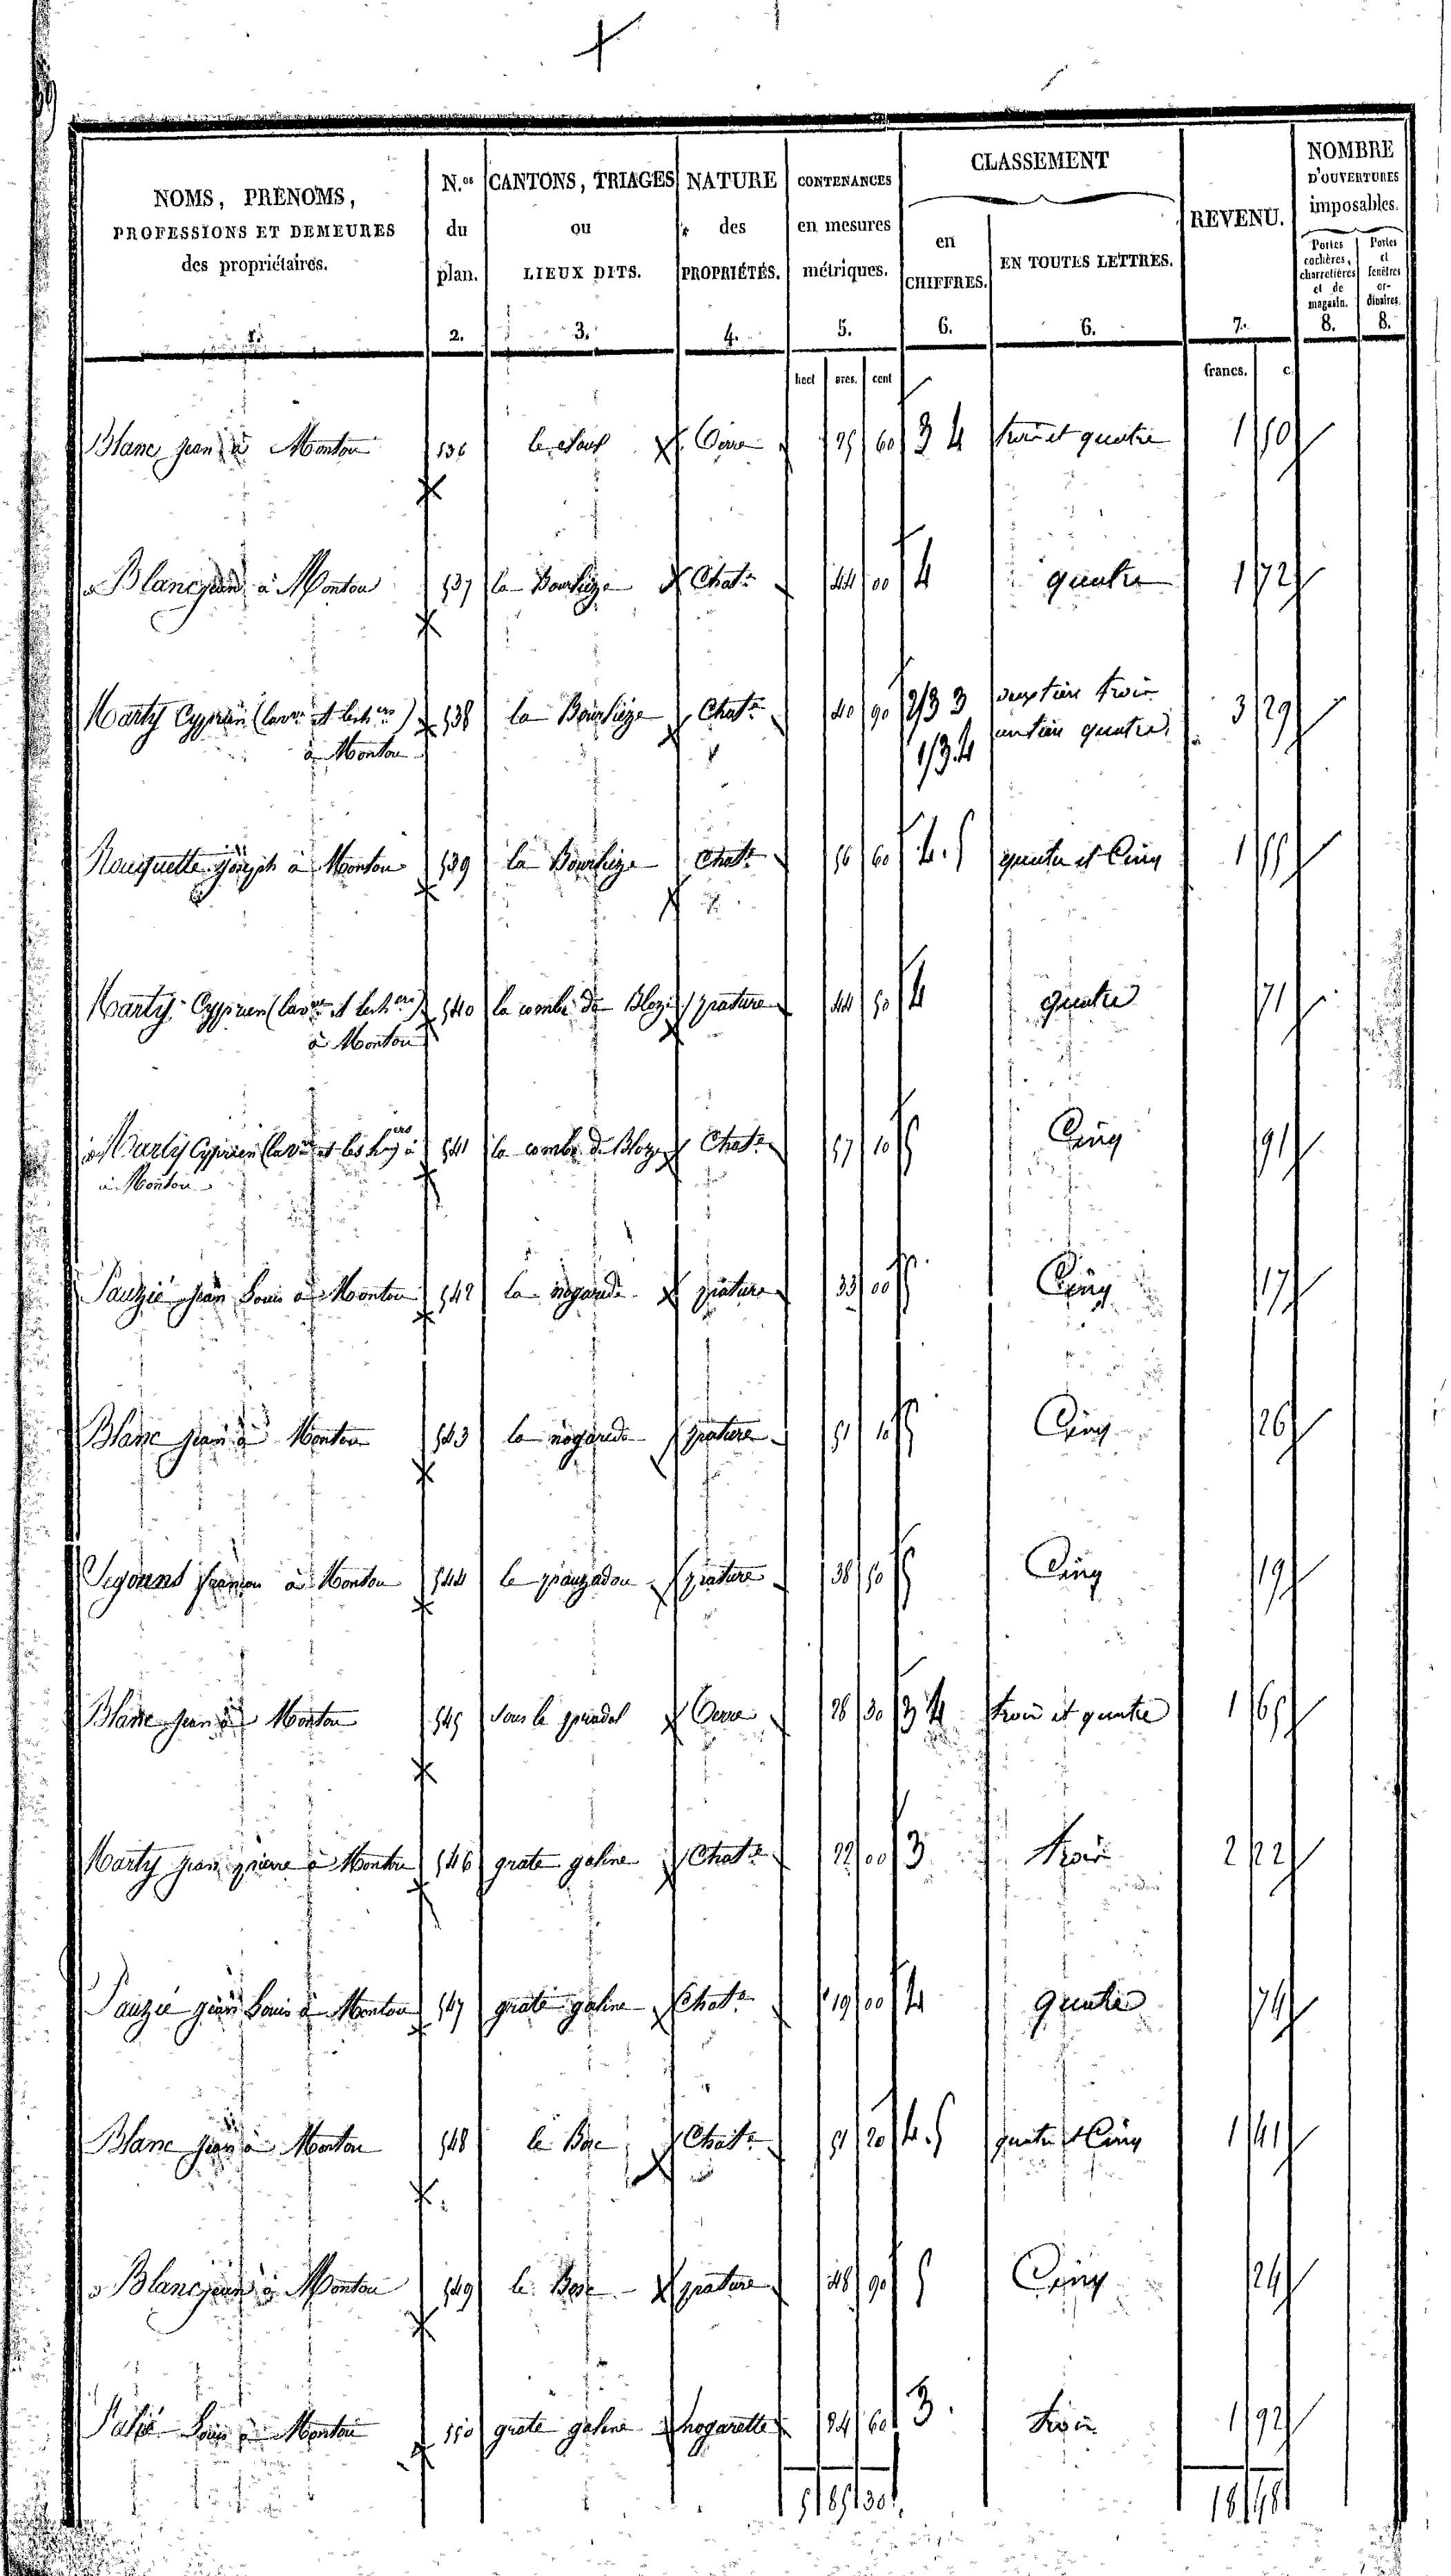 NOMS, PRÉNOMS, PROFESSIONS ET DEMEURES des propriétaires. 1.
N.os du plan. 2.
CANTONS, TRIAGES ou LIEUX DITS. 3.
NATURE des PROPRIÉTÉS. 4.
CONTENANCES en mesures métriques. 5.
CLASSEMENT
en CHIFFRES. 6.
EN TOUTES LETTRES. 6.
REVENU. 7.
NOMBRE D'OUVERTURES imposables.
Portes cochères, charretières et de magasin. 8.
Portes et fenêtres ordinaires. 8.
hect ares. cent francs. c.
Blanc jean à Montou 536 le Terre 25 60 3 4 trois et quatre 1 50
Blanc jean à Montou 537 la Bourlieze Chat.re 44 00 4 quatre 1 72
Marty Cyprien (la v.ve et les h.ers) 538 la Bourlieze Chat.re 40 90 2/3 3 deux tiers trois 3 29
à Montou 1/3 4 un tiers quatre
Rouquette joseph à Montou 539 la Bourlieze Chat.re 56 60 4. 5 quatre et Cinq 1 55
Marty Cyprien (la v.ve et les h.ers) 540 la combe de Bloze pature 44 50 4 quatre 71
à Montou
Marty Cyprien (la v.ve et les h.ers) à 541 la combe de Bloze Chat.re 57 10 5 Cinq 91
à Montou
Pauzié jean Louis à Montou 542 la nogarede pature 33 00 5 Cinq 17
Blanc jean à Montou 543 la nogarede pature 51 10 5 Cinq 26
Segound à Montou 544 le pauzadou pature 38 50 5 Cinq 19
Blanc jean à Montou 545 sous le Terre 28 30 3 4 trois et quatre 1 65
Marty jean pierre à Montou 546 grate galine Chat.re 22 00 3 trois 2 22
Pauzié jean Louis à Montou 547 grate galine Chat.re 19 00 4 quatre 74
Blanc jean à Montou 548 le Bosc Chat.re 51 20 4. 5 quatre et Cinq 1 41
Blanc jean à Montou 549 le Bosc pature 48 90 5 Cinq 24
Louis à Montou 550 grate galine nogarette 24 60 3. trois 1 92
5 85 30 18 48